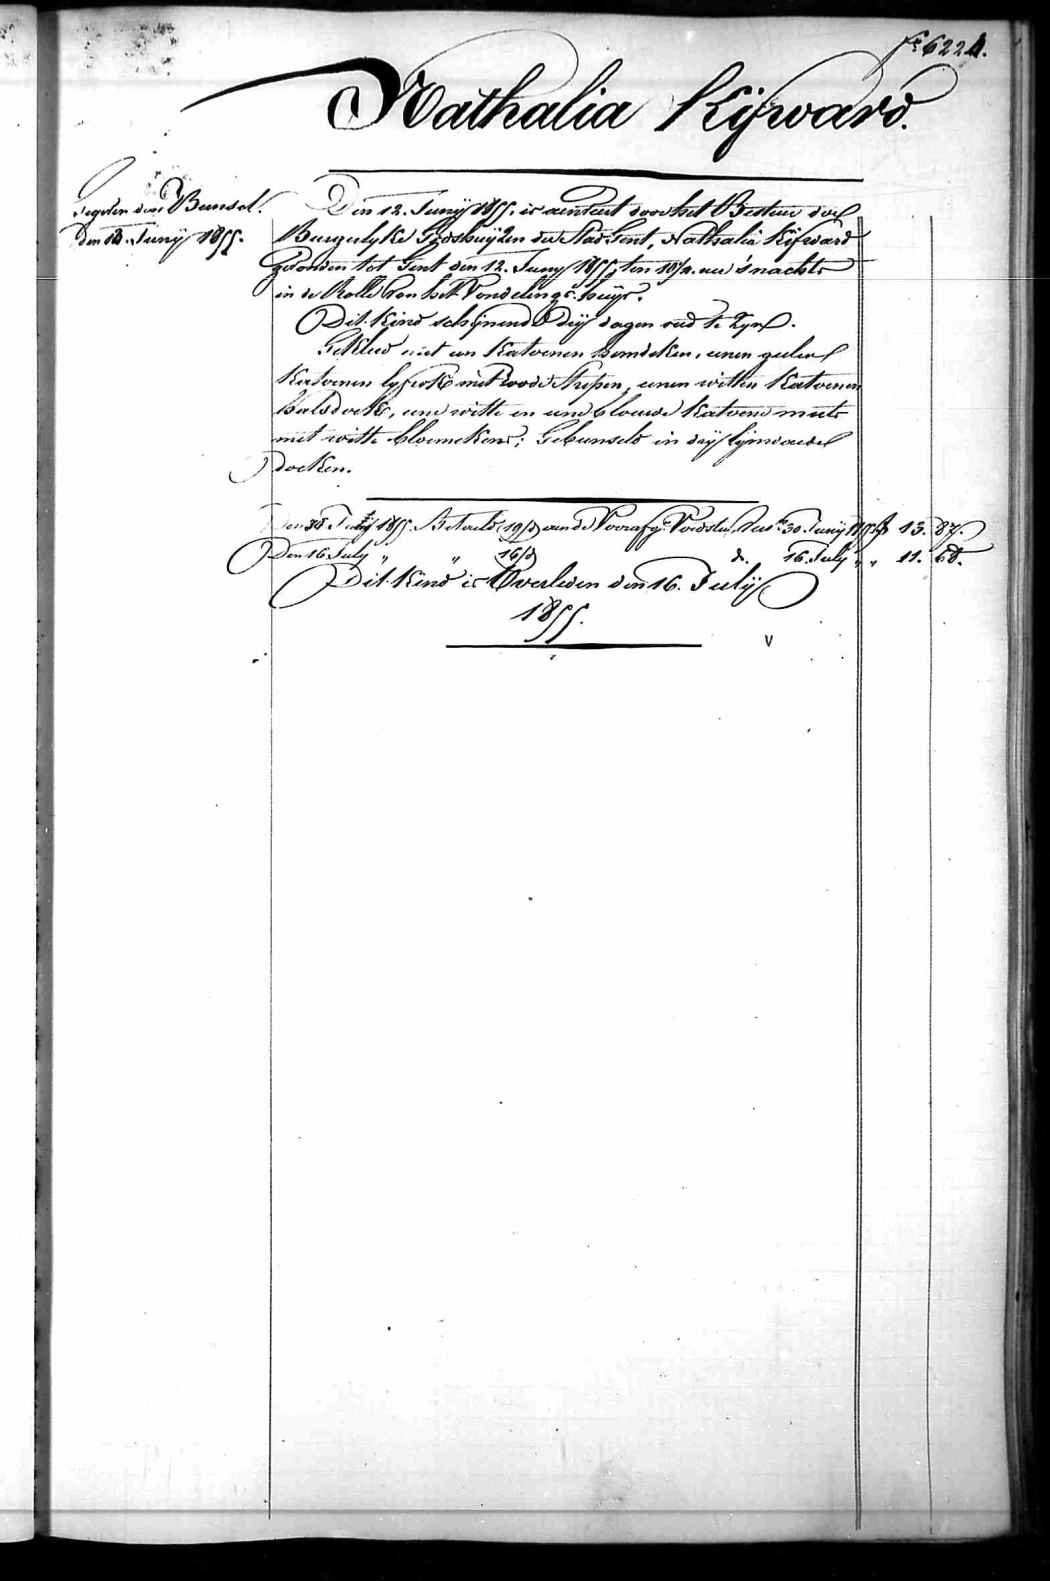 fo. 6224.
Nathalia Kijward.
Gegeven door Bunsel.
Den 12. Junij 1855. is aenveert door het Bestuer der
den 18. Junij 1855.
Burgerlyke Godshuyzen der Stad Gent, Nathalia Kijward
gevonden tot Gent den 12. Juny 1855, ten 10½ ure 's nachts
in de Rolle van het Vondelings-huijs.
Dit Kind schijnende drij dagen oud te zyn.
Gekleed met een Katoenen hemdeken, eenen geelen
Katoenen lyfrok met roode strepen, eenen witten Katoenen
halsdoek, eene witte en eene blouwe Katoene muts
met witte bloemekens; Gebunseld in drij lijnwaede
doeken.
Den 30 1855. Betaeld (19/d) aen de Voorafg: Voedster, Tus 30. Junij 1855 f 13. 87.
Den 16 July " " 16/d d. 16. July " " 11. 68.
Dit Kind is Overleden den 16. Julij
1855.
V